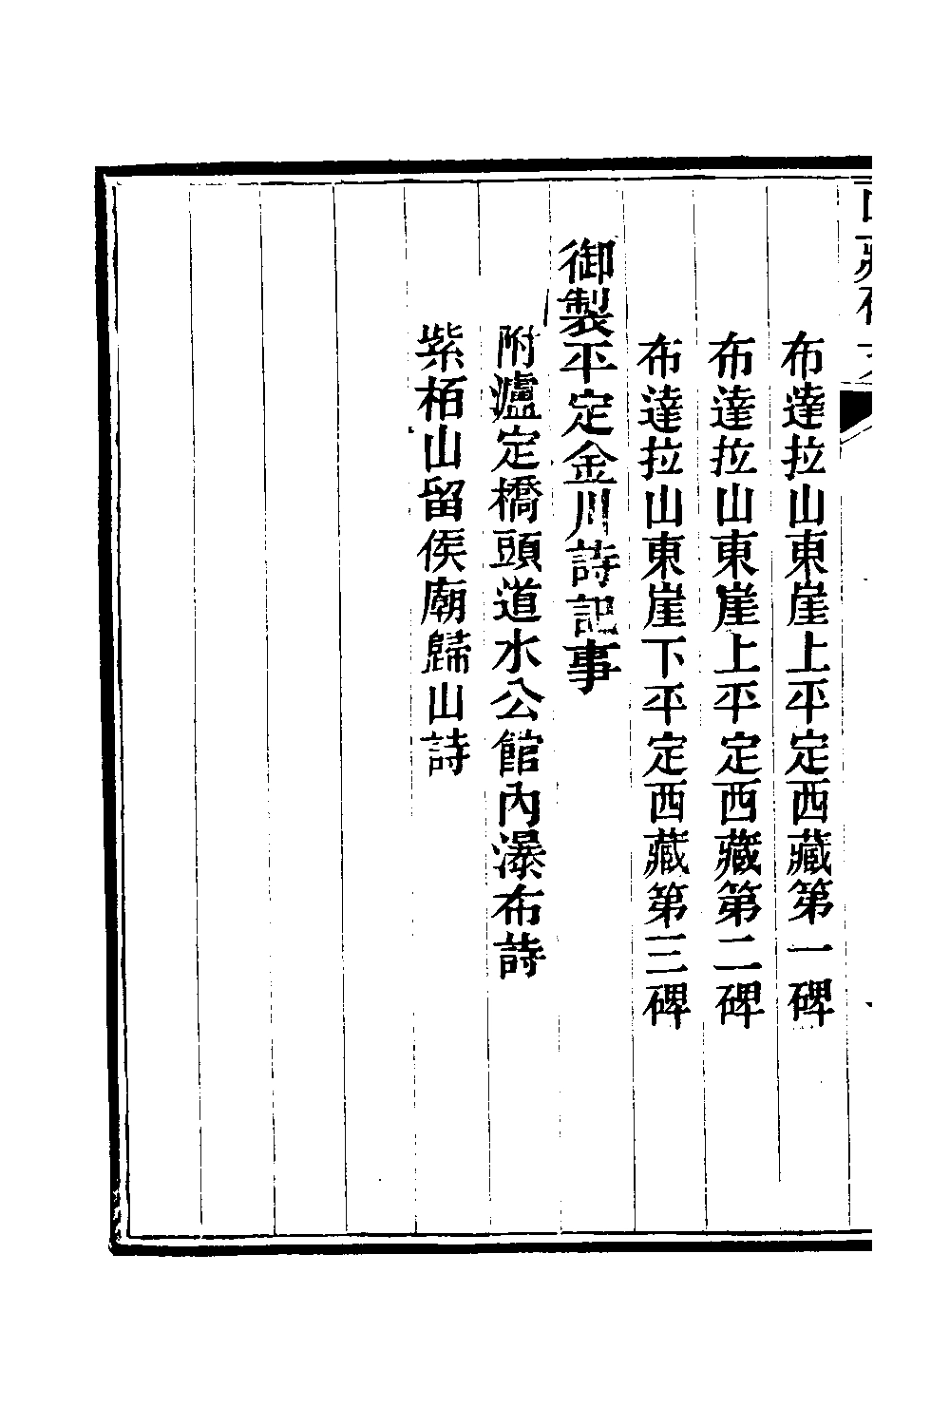 布達拉山東崖上平定西藏第一碑
布達拉山東崖上平定西藏第二碑
布達拉山東崖下平定西藏第三碑
御製平定金川詩記事
附瀘定橋頭道水公館內瀑布詩
紫栢山留侯廟歸山詩